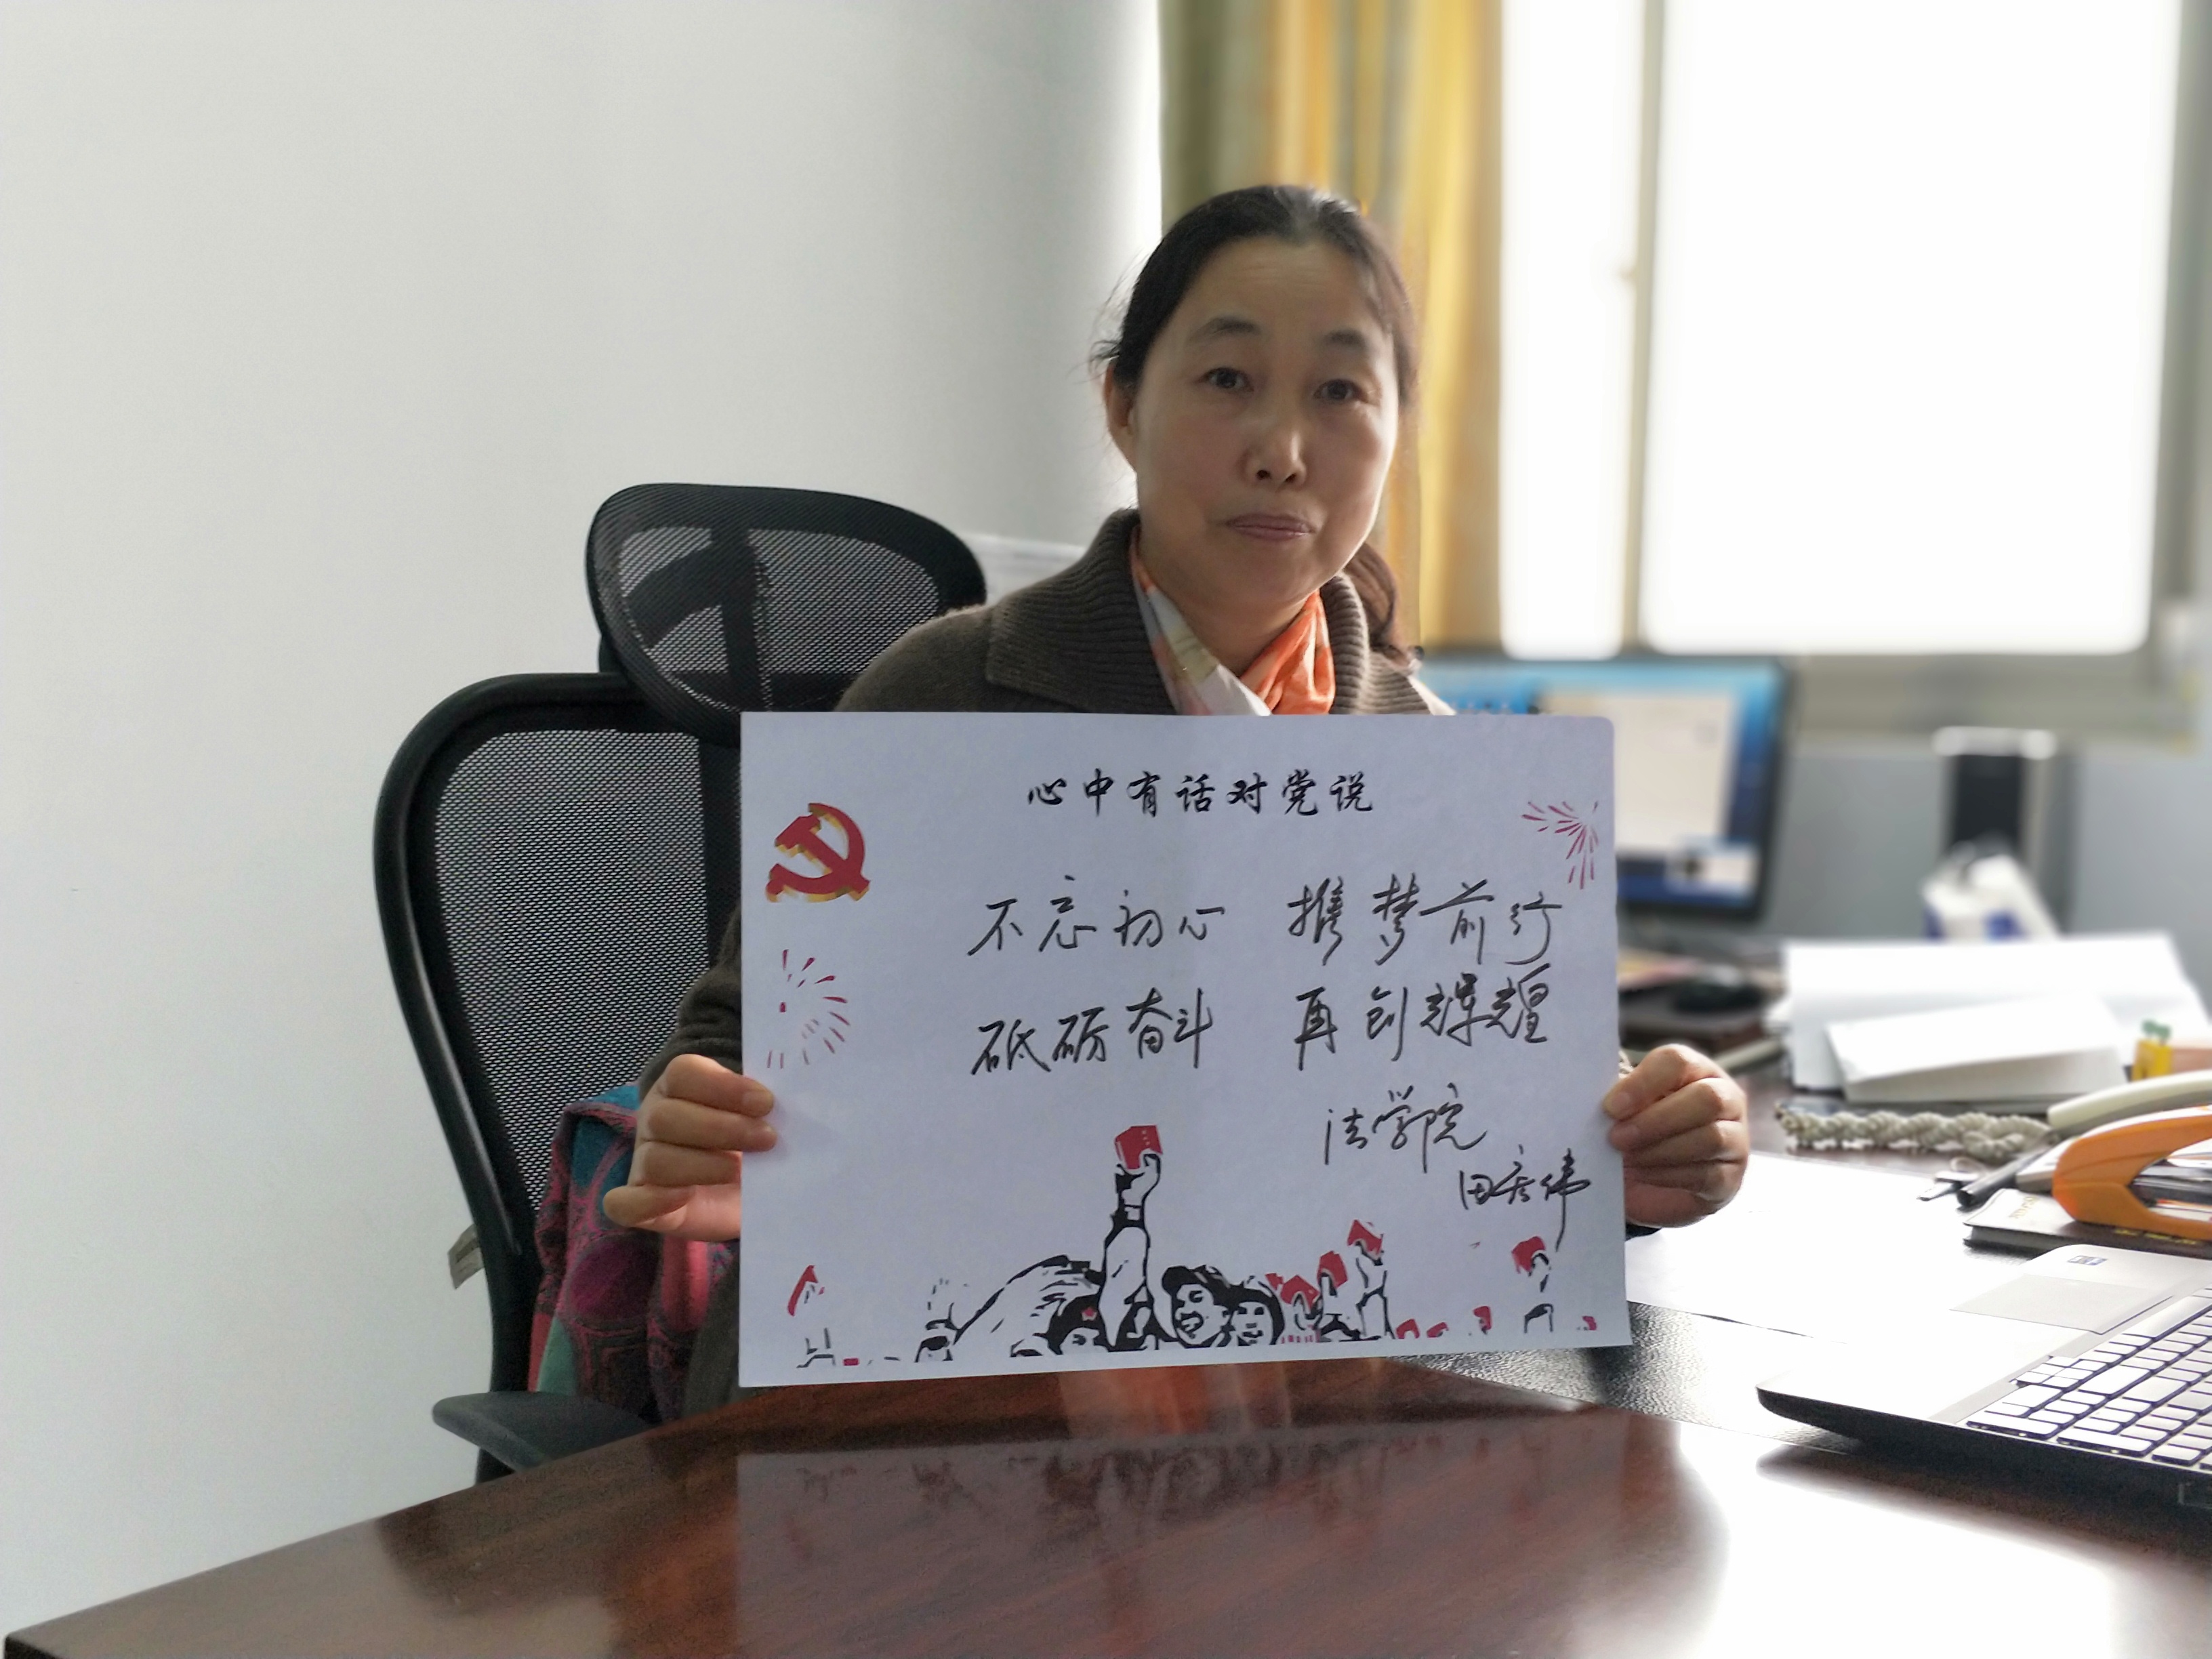 心中有话对党说
不忘初心 携梦前行
砥砺奋斗 再创辉煌
法学院